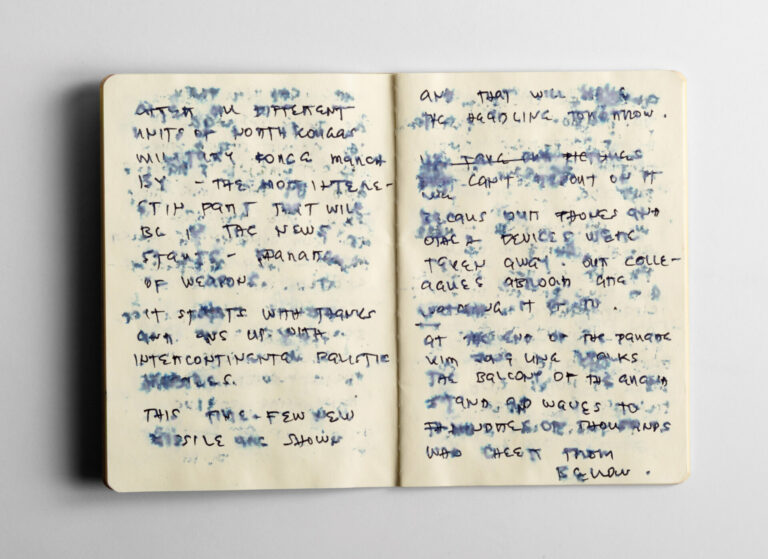 AFTER ALL DIFFERENT
UNITS OF NORTH KOREAS
MILITARY FORCE MARCH
BY - THE MOST INTERE-
STIN PART THAT WILL
BE I THE NEWS
STARTS - PARADE
OF WEAPON.
IT STARTS WITH THANKS
AND ENS UP WITH
INTERCONTINENTAL BALISTIC
THIS TIME FEW NEW
MISSILE ARE SHOWN
AND THAT WILL BE
THE HEADLINE TOMORROW.
PICTURES
CAN'T OUT ON IT
BECAUS OUR PHONES AND
OTHER DEVICES WERE
TEKEN AWAY OUR COLLE-
AGUES ABROAD ARE
IT
AT THE END OF THE PARADE
KIM JONG UNG WALKS
THE BALCONY OF THE GRAND
STAND AND WAVES TO
HUNDRES OF THOUSANDS
WHO CHEER FROM
BELLOW.